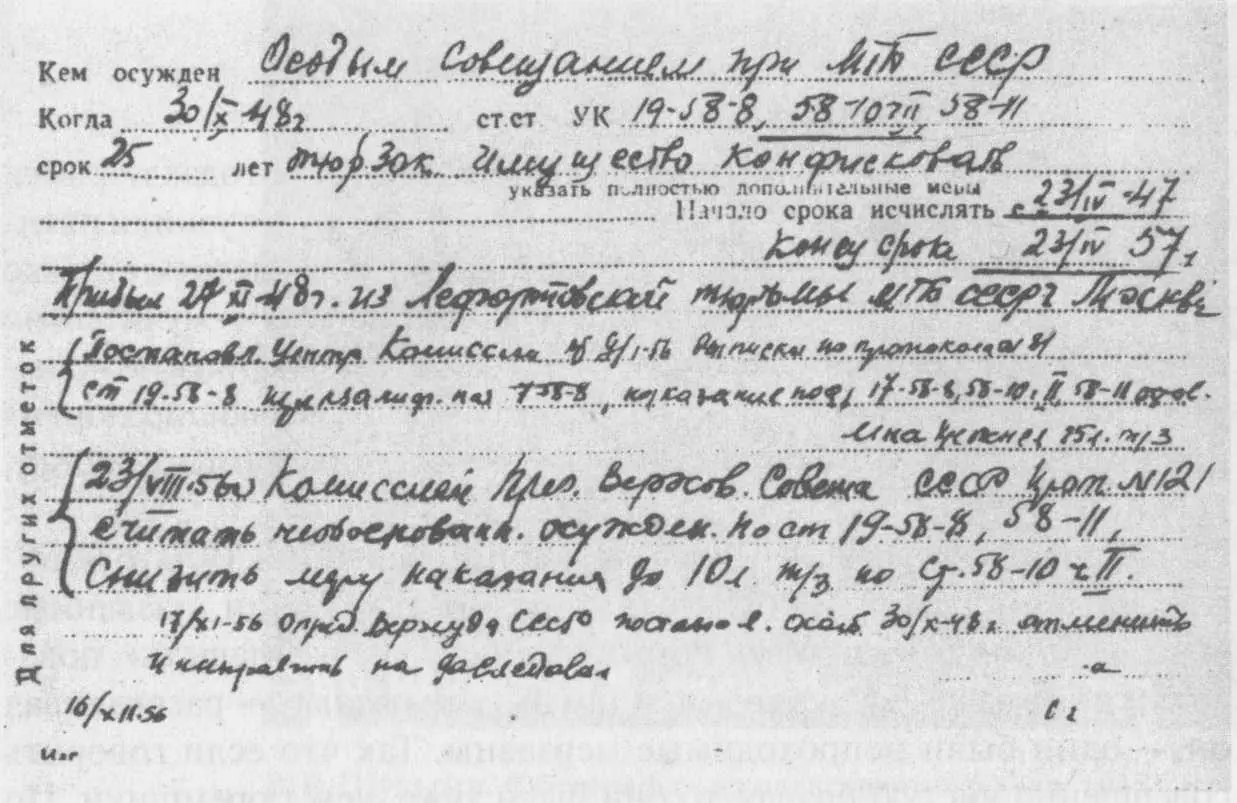 Кем осужден Особым Совещанием при МГБ СССР
Когда 30/X-48г ст.ст УК 19-58-8, 58-10 ч II, 58-11
срок 25 лет тюрзак имущество конфисковать
указать полностью дополнительные меры
Начало срока исчислять с 23/IV-47
конец срока 23/IV 57г
Прибыл 27 XI-48г. из Лефортовской тюрьмы МГБ СССР г Москвы
Постановл. Центр Комиссии от 9/I-56 выписки по протоколам
ст 19-58-8 на 58-8, наказание по 17-58-8, 58-10 ч II, 58-11
25л. т/з
23/VIII-56г Комиссией През. Верхов. Совета СССР прот. №121
считать необоснованн. осужден. по ст 19-58-8, 58-11,
снизить меру наказания до 10л т/з по ст. 58-10 ч II.
17/XI-56 Опред. Верхсуда СССР постановл. 30/X-48г отменить
и направить на
16/XII-56
Для других отметок